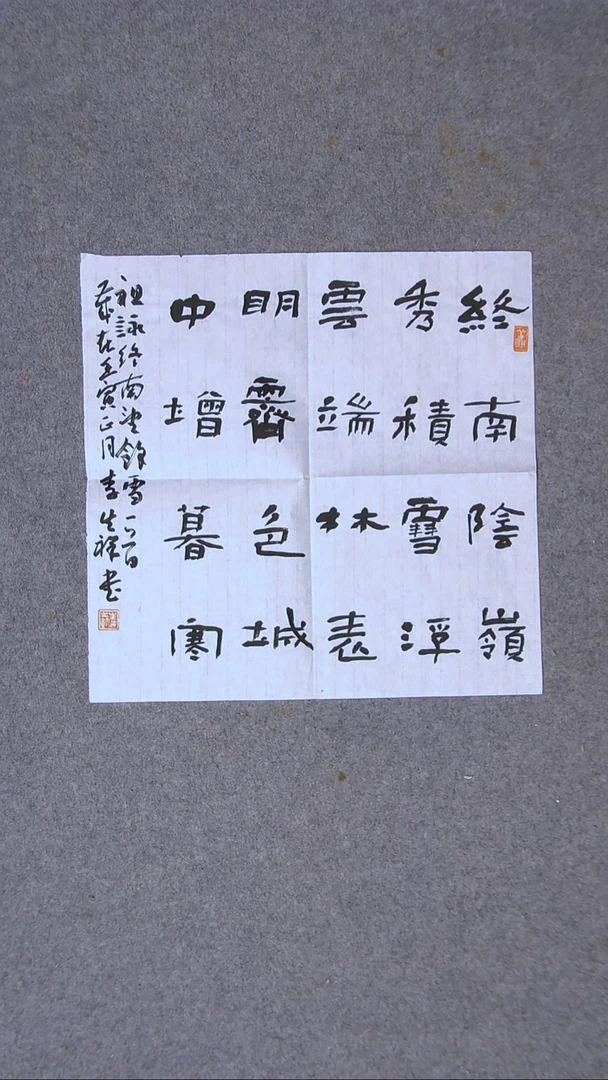 終南陰嶺
秀積雪浮
雲端林表
明霽色城
中增暮寒
祖詠終南望餘雪一首
歲在壬寅正月李生祥书